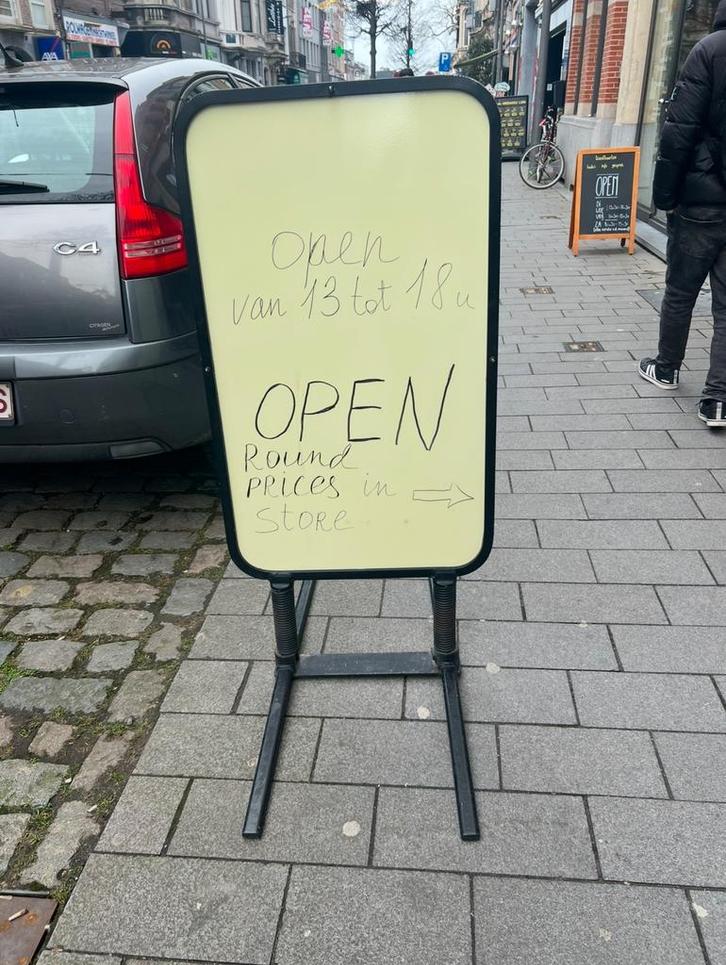 Open
van 13 tot 18u
OPEN
Round
PRICES in
STORE
C4
CITROËN
AXA
P
OPEN